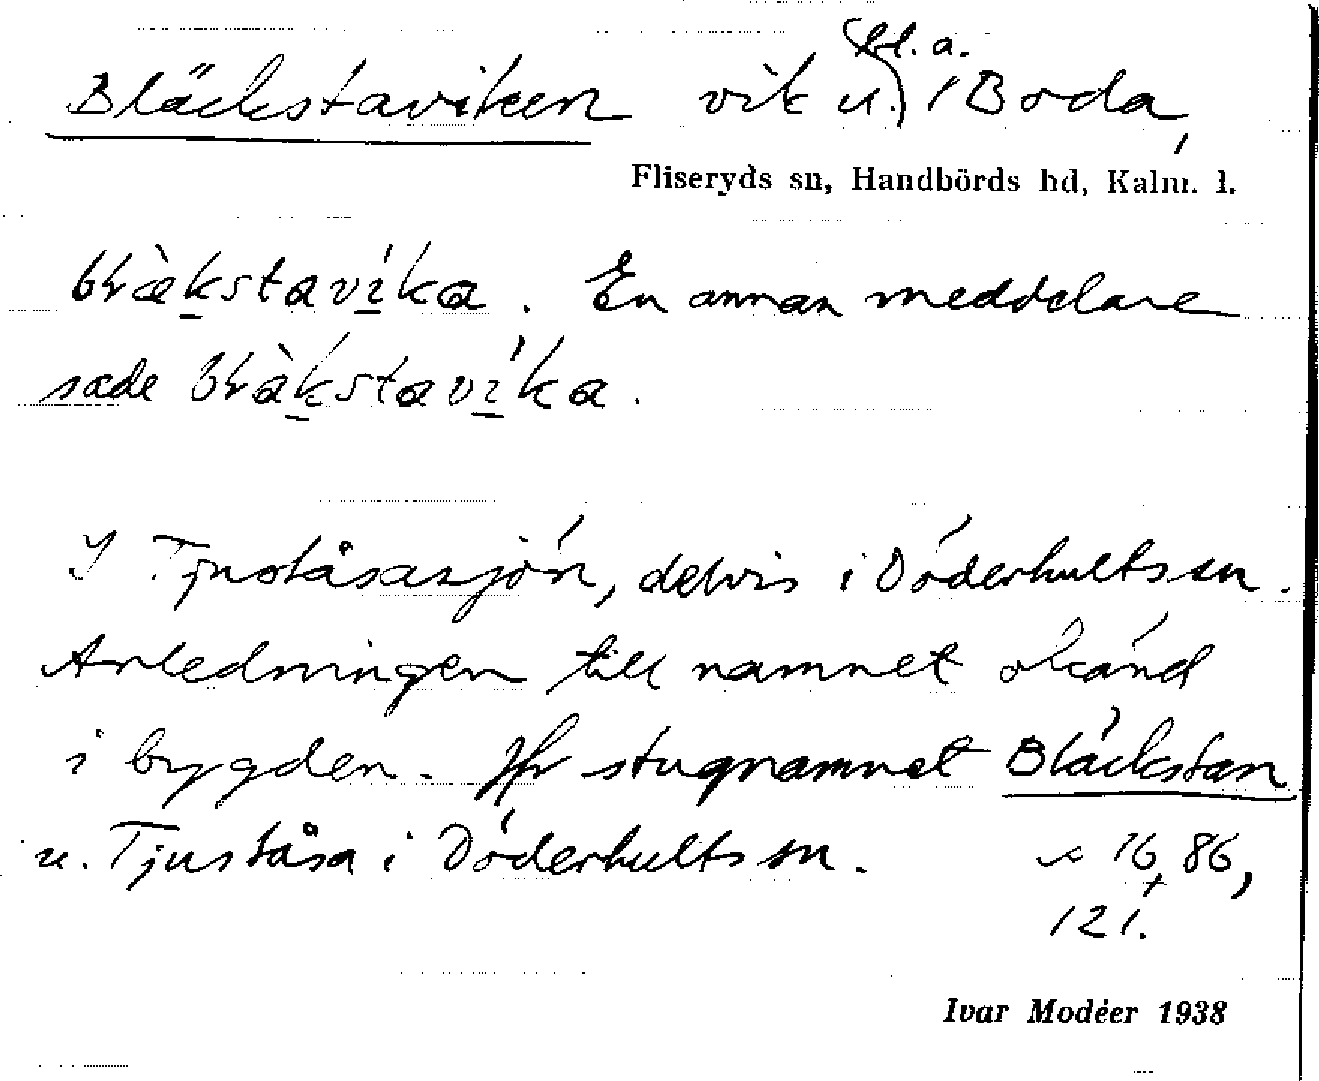 bl.a.
Bläckstaviken vik u. Boda,
Fliseryds sn, Handbörds hd, Kalm. l.
En annan meddelare
sade
I Tjuståsasjön, delvis i Döderhults sn.
Anledningen till namnet okänd
i bygden. Jfr stugnamnet Bläckstan
u. Tjuståsa i Döderhults sn. 16, 86,
121.
Ivar Modéer 1938